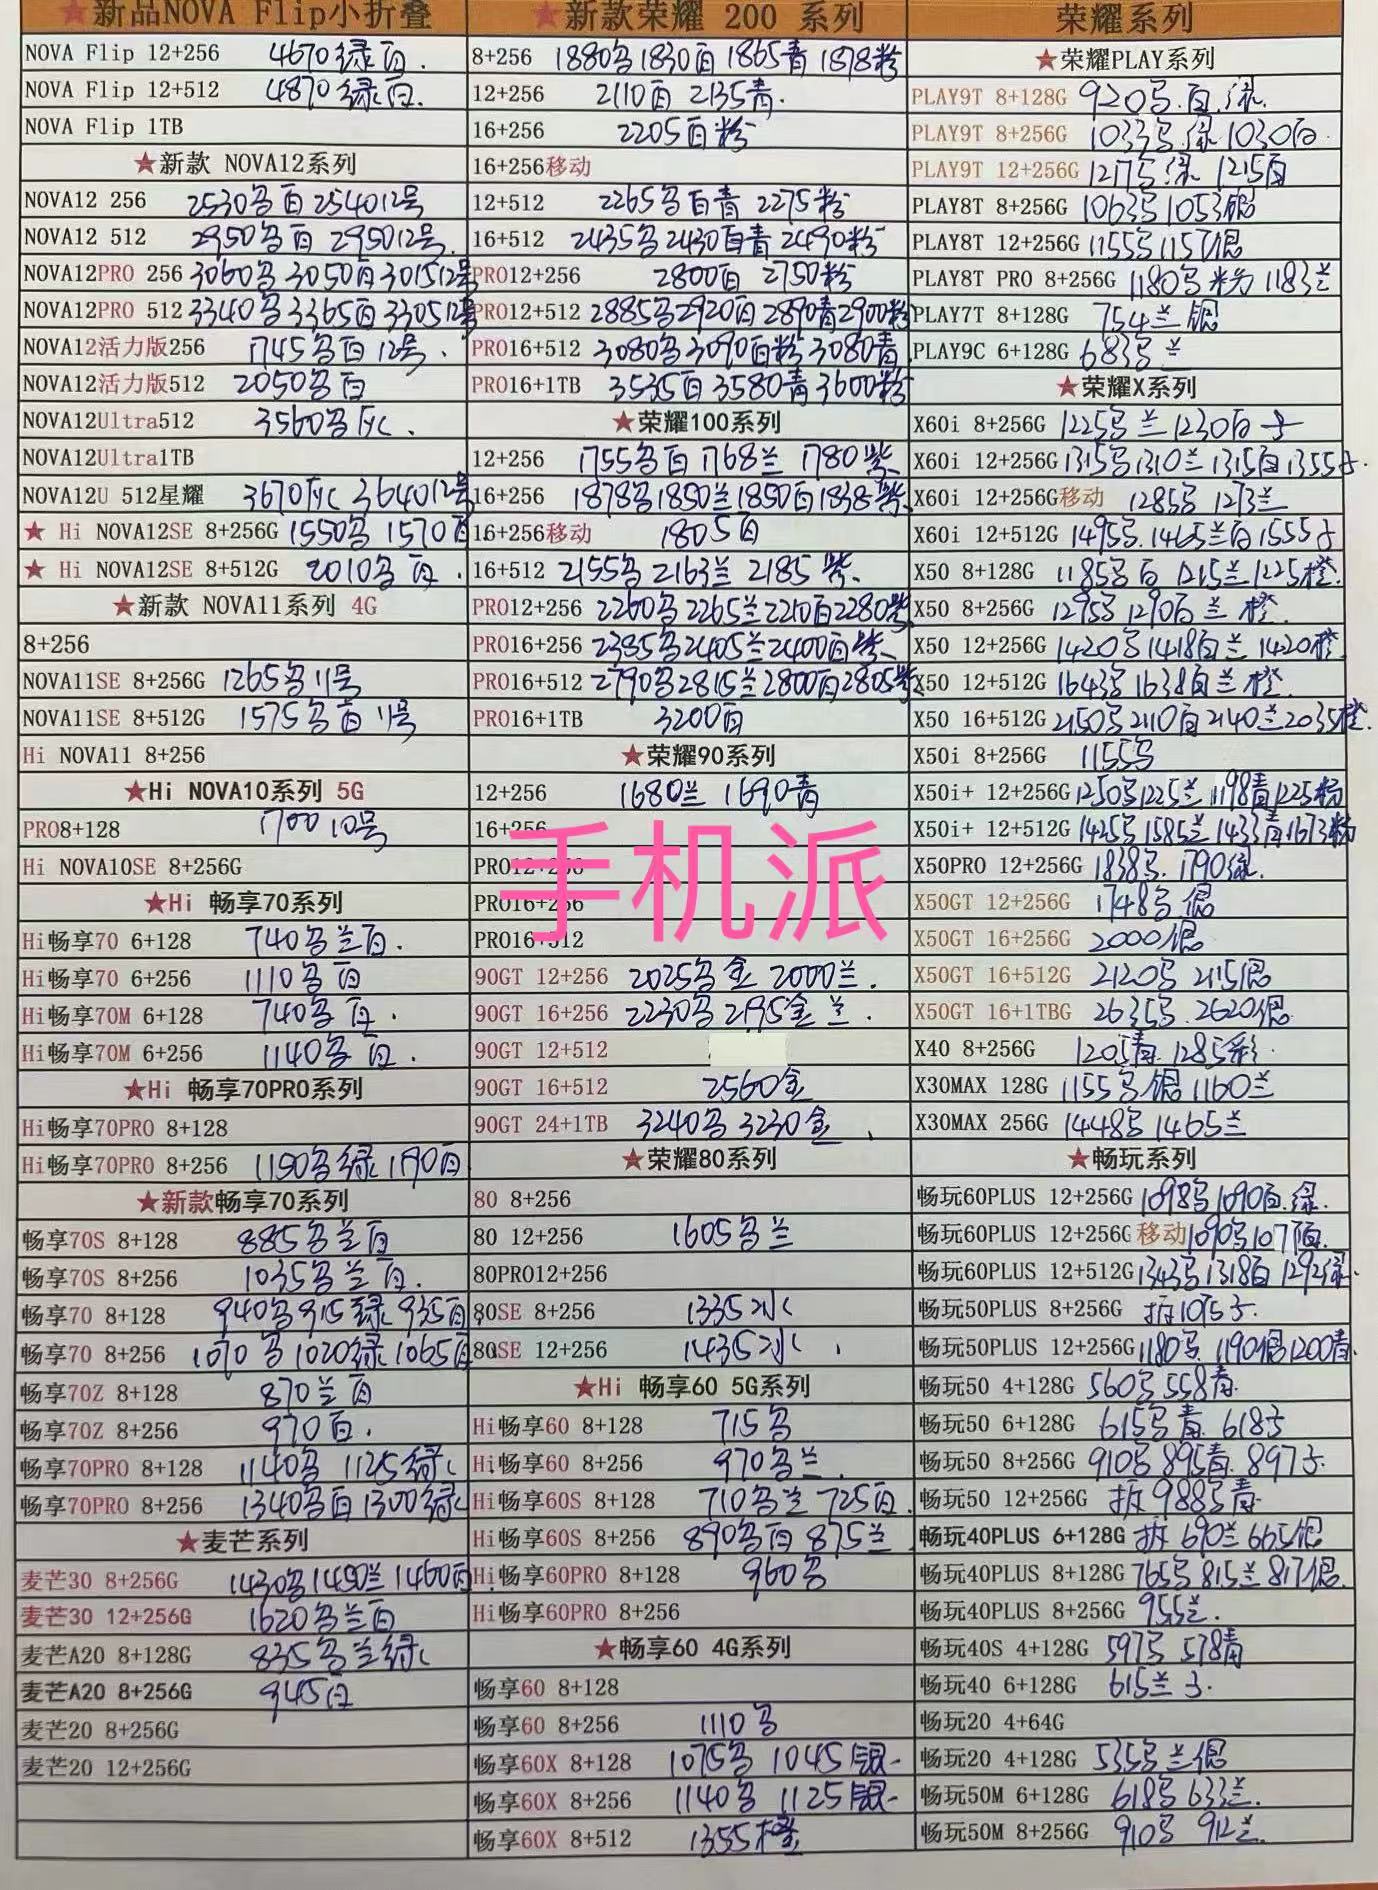 ★新品NOVA Flip小折叠
NOVA Flip 12+256 4670绿白.
NOVA Flip 12+512 4870绿白.
NOVA Flip 1TB
★新款 NOVA12系列
NOVA12 256 2530另白 2540 12号
NOVA12 512 2950另白 2950 12号.
NOVA12PRO 256 3060另 3050白 3015 12号
NOVA12PRO 512 3340另 3365白 3305 12号
NOVA12活力版256 1745另白 12号.
NOVA12活力版512 2050另白
NOVA12Ultra512 3560另灰.
NOVA12Ultra1TB
NOVA12U 512星耀 3670灰 3640 12号
★ Hi NOVA12SE 8+256G 1550另 1570白
★ Hi NOVA12SE 8+512G 2010另白.
★新款 NOVA11系列 4G
8+256
NOVA11SE 8+256G 1265另 11号
NOVA11SE 8+512G 1575另白 11号
Hi NOVA11 8+256
★Hi NOVA10系列 5G
PRO8+128 1700 10号
Hi NOVA10SE 8+256G
★Hi 畅享70系列
Hi畅享70 6+128 740另兰白.
Hi畅享70 6+256 1110另白
Hi畅享70M 6+128 740另白.
Hi畅享70M 6+256 1140另白.
★Hi 畅享70PRO系列
Hi畅享70PRO 8+128
Hi畅享70PRO 8+256 1190另绿 1190白
★新款畅享70系列
畅享70S 8+128 885另兰白
畅享70S 8+256 1035另兰白.
畅享70 8+128 940另 915绿 935白
畅享70 8+256 1070另 1020绿 1065白
畅享70Z 8+128 870兰白
畅享70Z 8+256 970白.
畅享70PRO 8+128 1140另 1125绿
畅享70PRO 8+256 1340另白 1300绿
★麦芒系列
麦芒30 8+256G 1430另 1450兰 1460白
麦芒30 12+256G 1620另兰白
麦芒A20 8+128G 835另兰绿
麦芒A20 8+256G 945白
麦芒20 8+256G
麦芒20 12+256G
★新款荣耀 200 系列
8+256 1880另 1830白 1865青 1878粉
12+256 2110白 2135青.
16+256 2205白粉
16+256移动
12+512 2265另白青 2275粉
16+512 2435另 2430白青 2490粉
PRO12+256 2800白 2750粉
PRO12+512 2885另 2920白 2890青 2900粉
PRO16+512 3080另 3090白粉 3080青
PRO16+1TB 3535白 3580青 3600粉
★荣耀100系列
12+256 1755另白 1768兰 1780紫
16+256 1878另 1850兰 1850白 1838紫
16+256移动 1805白
16+512 2155另 2163兰 2185紫.
PRO12+256 2260另 2265兰 2210白 2280紫
PRO16+256 2385另 2405兰 2400白紫
PRO16+512 2790另 2815兰 2800白 2805紫
PRO16+1TB 3200白
★荣耀90系列
12+256 1680兰 1690青
16+256
PRO12+256
PRO16+256
PRO16+512
90GT 12+256 2025另金 2000兰.
90GT 16+256 2230另 2195金兰.
90GT 12+512
90GT 16+512 2560金
90GT 24+1TB 3240另 3230金
★荣耀80系列
80 8+256
80 12+256 1605另兰
80PRO12+256
80SE 8+256 1335冰
80SE 12+256 1435冰
★Hi 畅享60 5G系列
Hi畅享60 8+128 715另
Hi畅享60 8+256 970另兰.
Hi畅享60S 8+128 710另兰 725白.
Hi畅享60S 8+256 890另白 875兰
Hi畅享60PRO 8+128 960另
Hi畅享60PRO 8+256
★畅享60 4G系列
畅享60 8+128
畅享60 8+256 1110另
畅享60X 8+128 1075另 1045银
畅享60X 8+256 1140另 1125银
畅享60X 8+512 1355橙
荣耀系列
★荣耀PLAY系列
PLAY9T 8+128G 920另.白.绿.
PLAY9T 8+256G 1033另.绿 1030白
PLAY9T 12+256G 1217另绿 1215白
PLAY8T 8+256G 1063另 1053银
PLAY8T 12+256G 1155另 1157银
PLAY8T PRO 8+256G 1180另粉 1183兰
PLAY7T 8+128G 754兰银
PLAY9C 6+128G 683另兰
★荣耀X系列
X60i 8+256G 1225另兰 1230白子
X60i 12+256G 1315另 1310兰 1315白 1355子.
X60i 12+256G移动 1285另 1273兰
X60i 12+512G 1495另.1465兰白 1555子
X50 8+128G 1185另白 1215兰 1225橙.
X50 8+256G 1295另 1290白兰橙.
X50 12+256G 1420另 1418白兰 1420橙
X50 12+512G 1643另 1638白兰橙.
X50 16+512G 2150另 2110白 2140兰 2035橙.
X50i 8+256G 1155另
X50i+ 12+256G 1250另 1225兰 1198青 1225粉
X50i+ 12+512G 1425另 1585兰 1433青 1673粉
X50PRO 12+256G 1838另. 1790绿.
X50GT 12+256G 1748另银
X50GT 16+256G 2000银
X50GT 16+512G 2120另 2115银
X50GT 16+1TBG 2635另.2620银
X40 8+256G 1205青. 1285彩.
X30MAX 128G 1155另银 1160兰
X30MAX 256G 1448另 1465兰
★畅玩系列
畅玩60PLUS 12+256G 1098另 1090白.绿.
畅玩60PLUS 12+256G 移动 1090另 1077白.
畅玩60PLUS 12+512G 1343另 1318白 1292绿.
畅玩50PLUS 8+256G 拆1095子.
畅玩50PLUS 12+256G 1180另. 1190银 1200青.
畅玩50 4+128G 560另 558青.
畅玩50 6+128G 615另青. 618子
畅玩50 8+256G 910另 895青. 897子.
畅玩50 12+256G 拆 988另青.
畅玩40PLUS 6+128G 拆 690兰 665银
畅玩40PLUS 8+128G 765另 815兰 817银.
畅玩40PLUS 8+256G 955兰.
畅玩40S 4+128G 597另 578青
畅玩40 6+128G 615兰子.
畅玩20 4+64G
畅玩20 4+128G 535另兰银
畅玩50M 6+128G 618另 633兰.
畅玩50M 8+256G 910另 912兰.
手机派